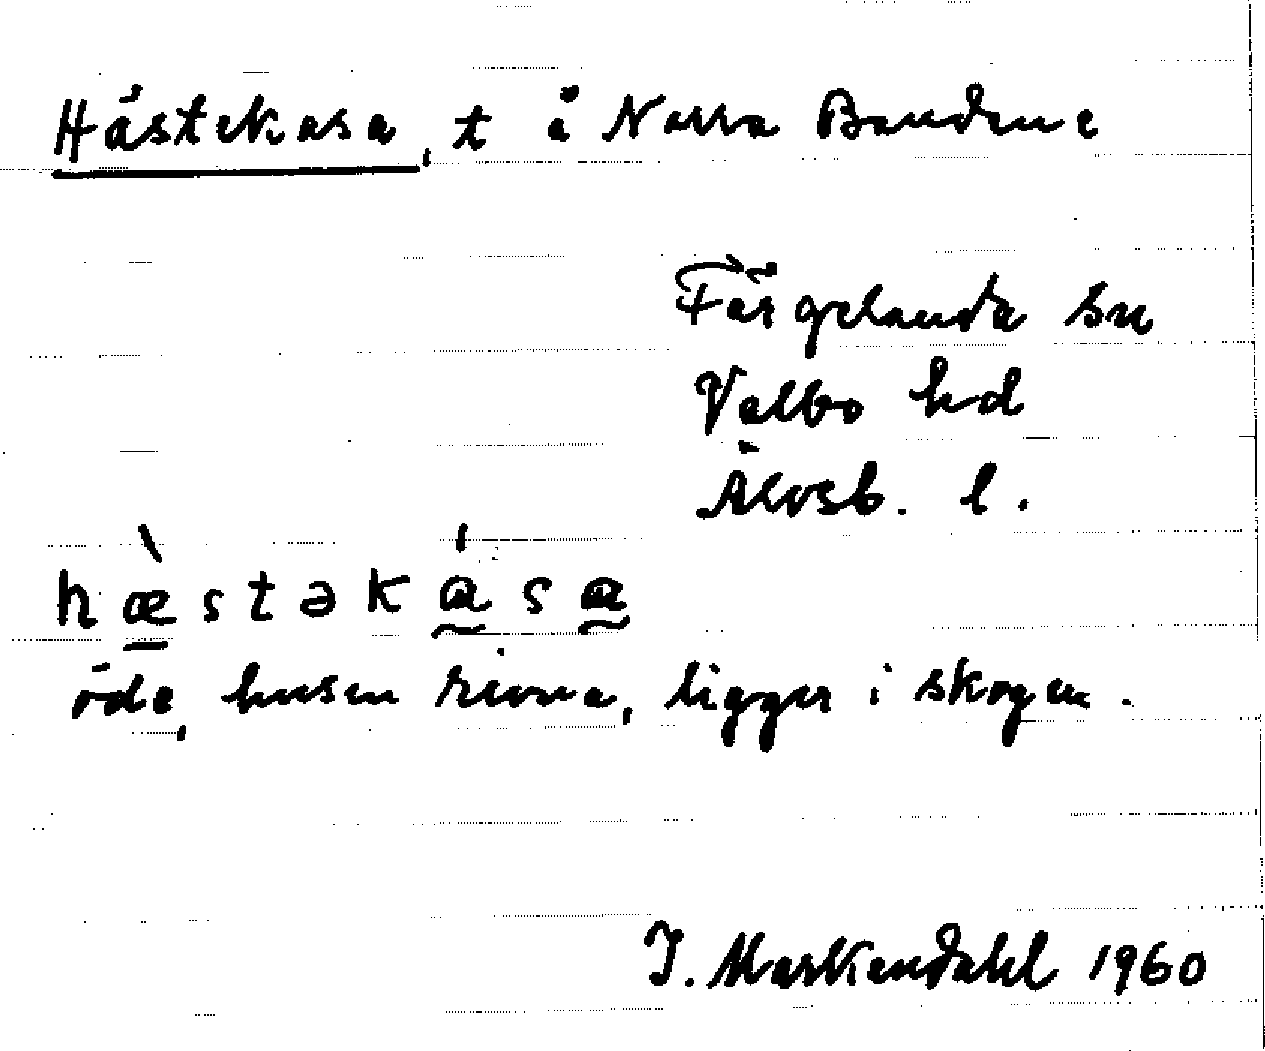 Hästekasa, t å Norra Bondene
Färgelanda sn
Valbo hd
Älvsb. l.
hæ̀stəkɑ́sɑ
öde, husen rivna, ligger i skogen.
J. Markendahl 1960